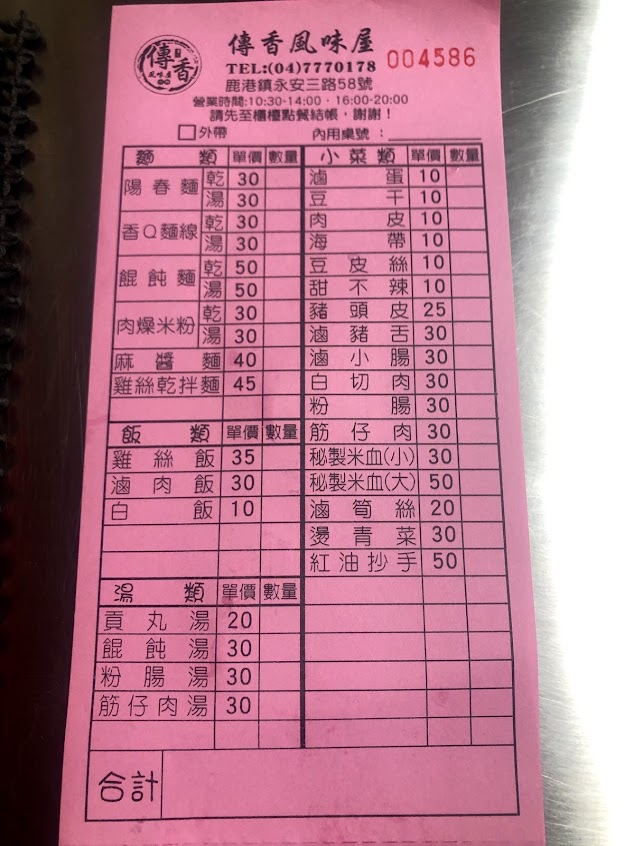 傳香
風味屋
傳香風味屋
004586
TEL:(04)7770178
鹿港鎮永安三路58號
營業時間:10:30-14:00、16:00-20:00
請先至櫃檯點餐結帳，謝謝！
□外帶 內用桌號：
麵類 單價 數量
陽春麵 乾 30
湯 30
香Q麵線 乾 30
湯 30
餛飩麵 乾 50
湯 50
肉燥米粉 乾 30
湯 30
麻醬麵 40
雞絲乾拌麵 45
飯類 單價 數量
雞絲飯 35
滷肉飯 30
白飯 10
湯類 單價 數量
貢丸湯 20
餛飩湯 30
粉腸湯 30
筋仔肉湯 30
小菜類 單價 數量
滷蛋 10
豆干 10
肉皮 10
海帶 10
豆皮絲 10
甜不辣 10
豬頭皮 25
滷豬舌 30
滷小腸 30
白切肉 30
粉腸 30
筋仔肉 30
秘製米血(小) 30
秘製米血(大) 50
滷筍絲 20
燙青菜 30
紅油抄手 50
合計